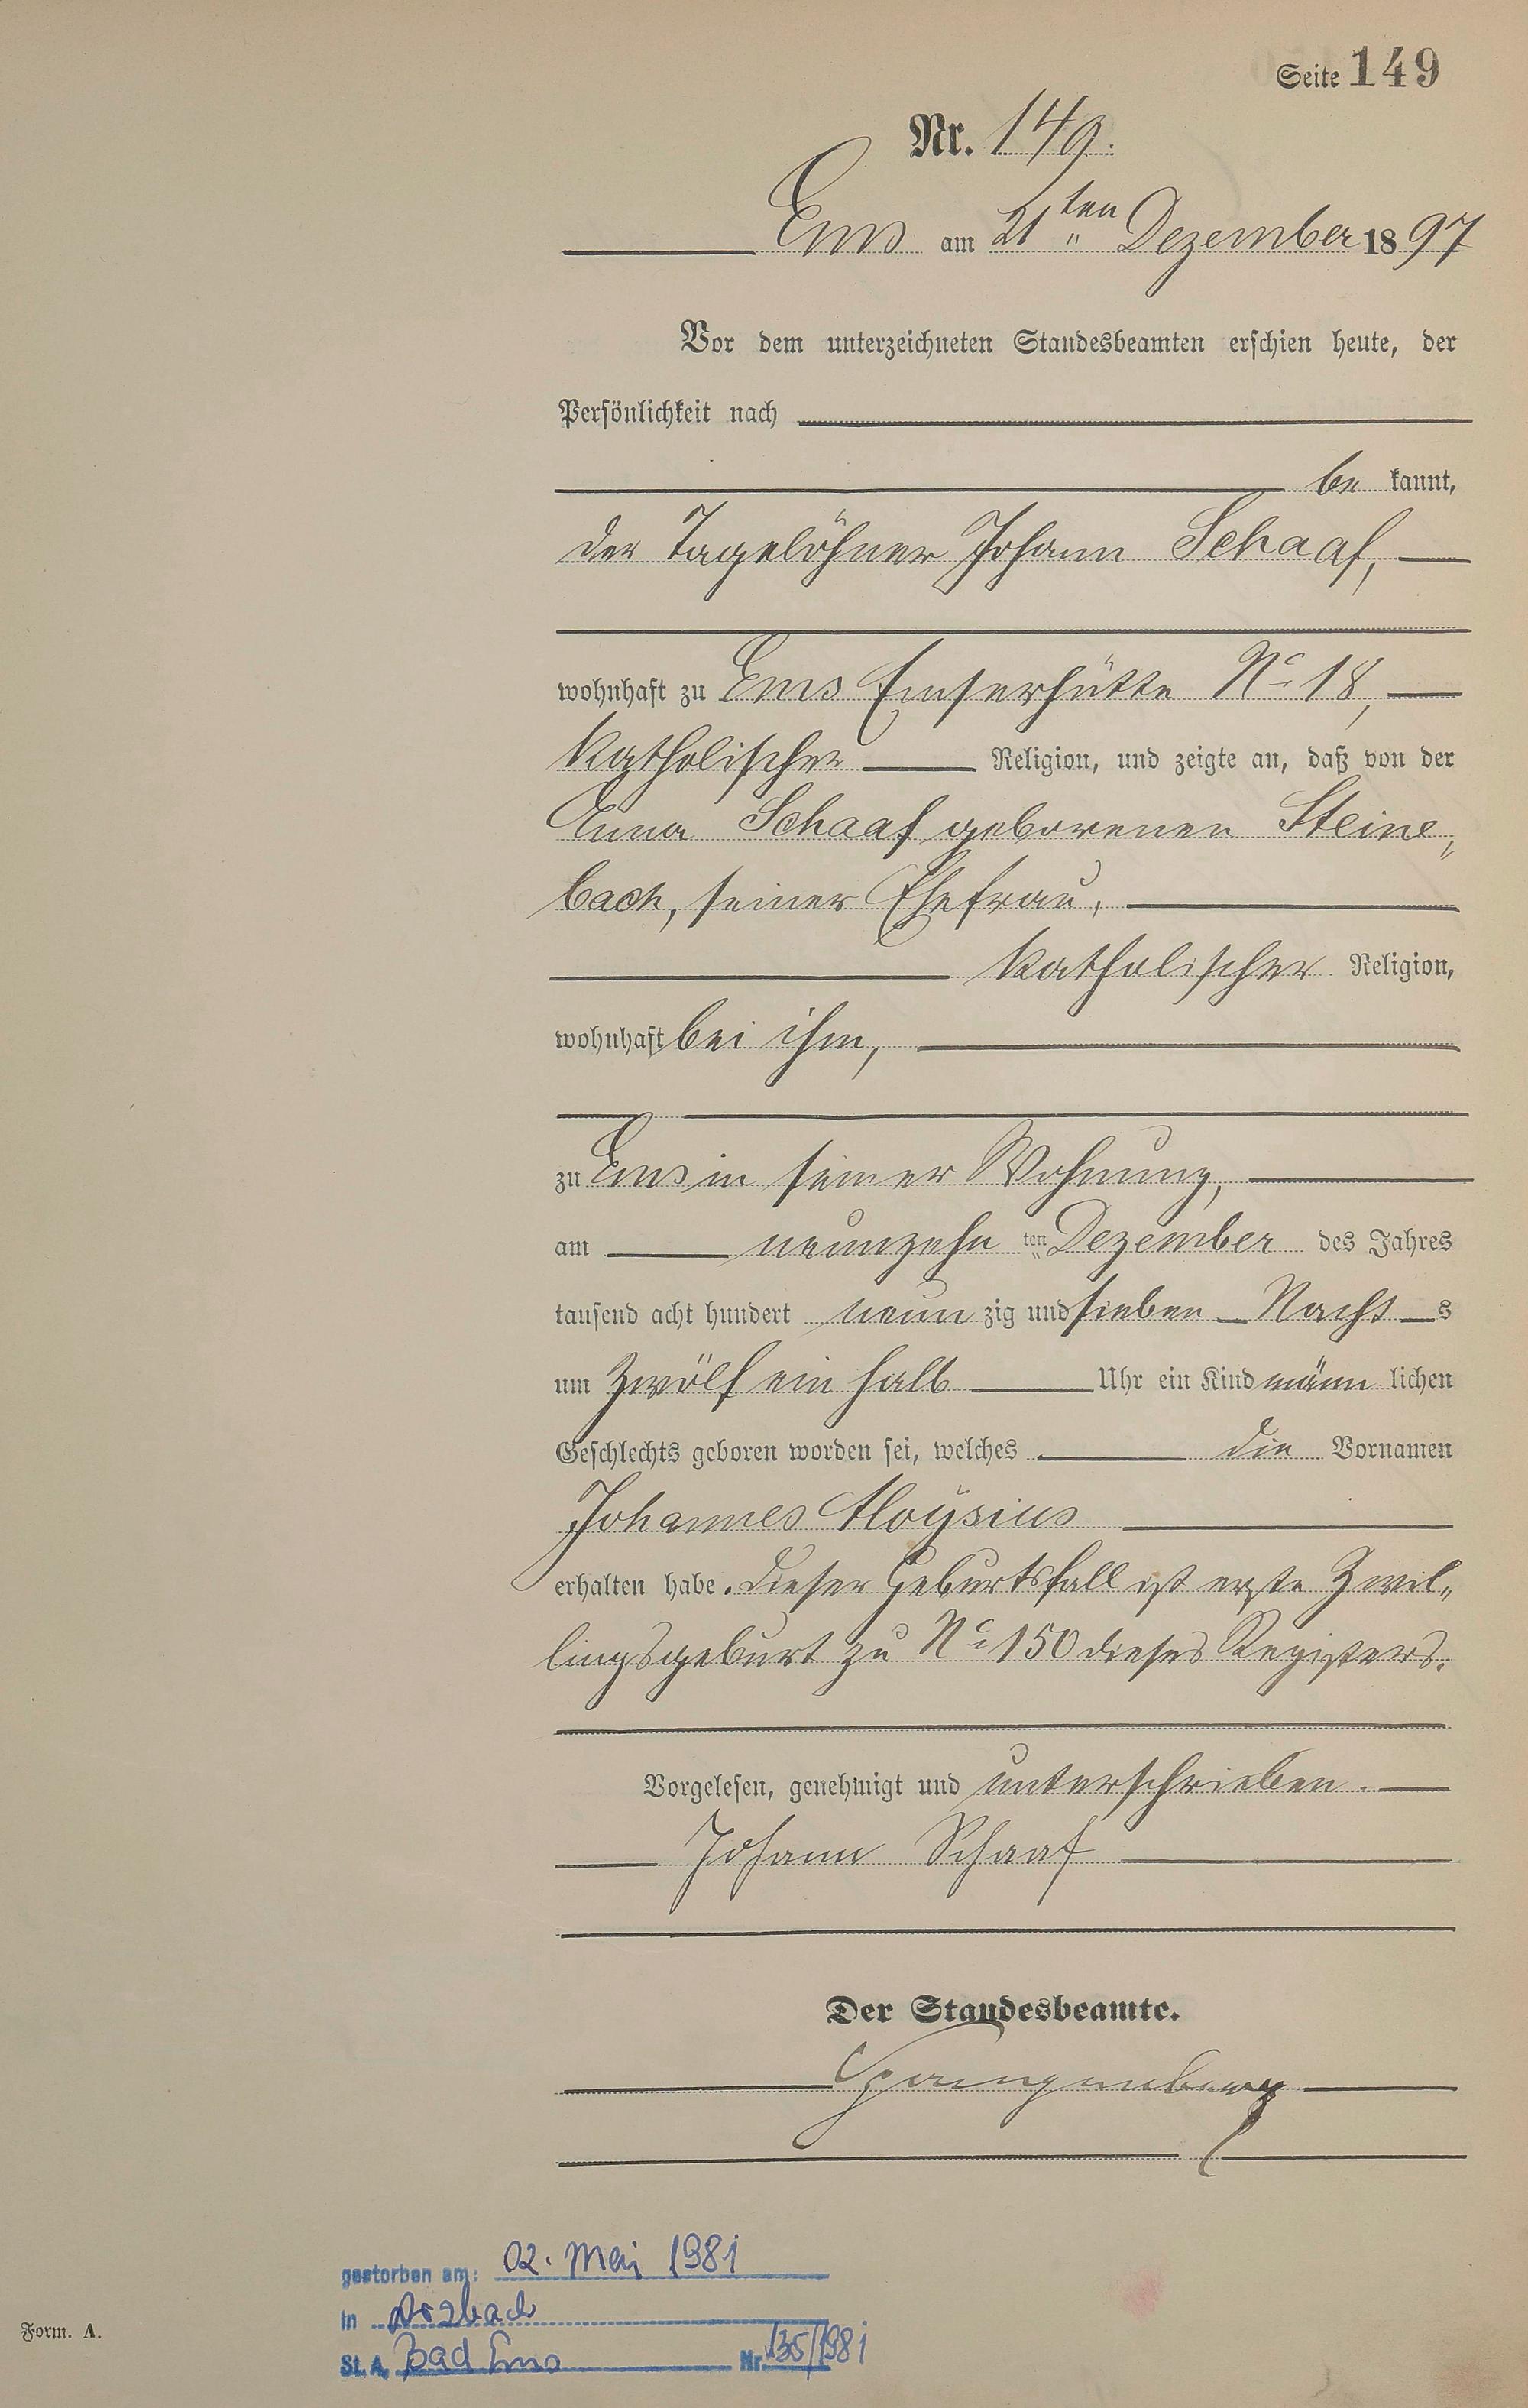 Seite 149
Nr. 149.
Ems am 21ten Dezember 1897
Vor dem unterzeichneten Standesbeamten erschien heute, der
Persönlichkeit nach
be kannt,
der Tagelöhner Johann Schaaf,
wohnhaft zu Ems Emserhütte No 18,
katholischer Religion, und zeigte an, daß von der
Schaaf geborenen Steine„
bach, seiner Ehefrau,
katholischer Religion,
wohnhaft bei ihm,
zu Ems in seiner Wohnung,
am neunzehn ten Dezember des Jahres
tausend acht hundert neun zig und sieben Nacht s
um zwölf ein halb Uhr ein Kind männ lichen
Geschlechts geboren worden sei, welches die Vornamen
Johannes Aloÿsius
erhalten habe. Dieser Geburtsfall ist erste Zwil„
lingsgeburt zu No 150 dieses Registers.
Vorgelesen, genehmigt und unterschrieben.
Johann Schaaf
Der Standesbeamte.
gestorben am: 02. Mai 1981
in Arzbach
St. A. Bad Ems Nr. 135/1981
Form. A.